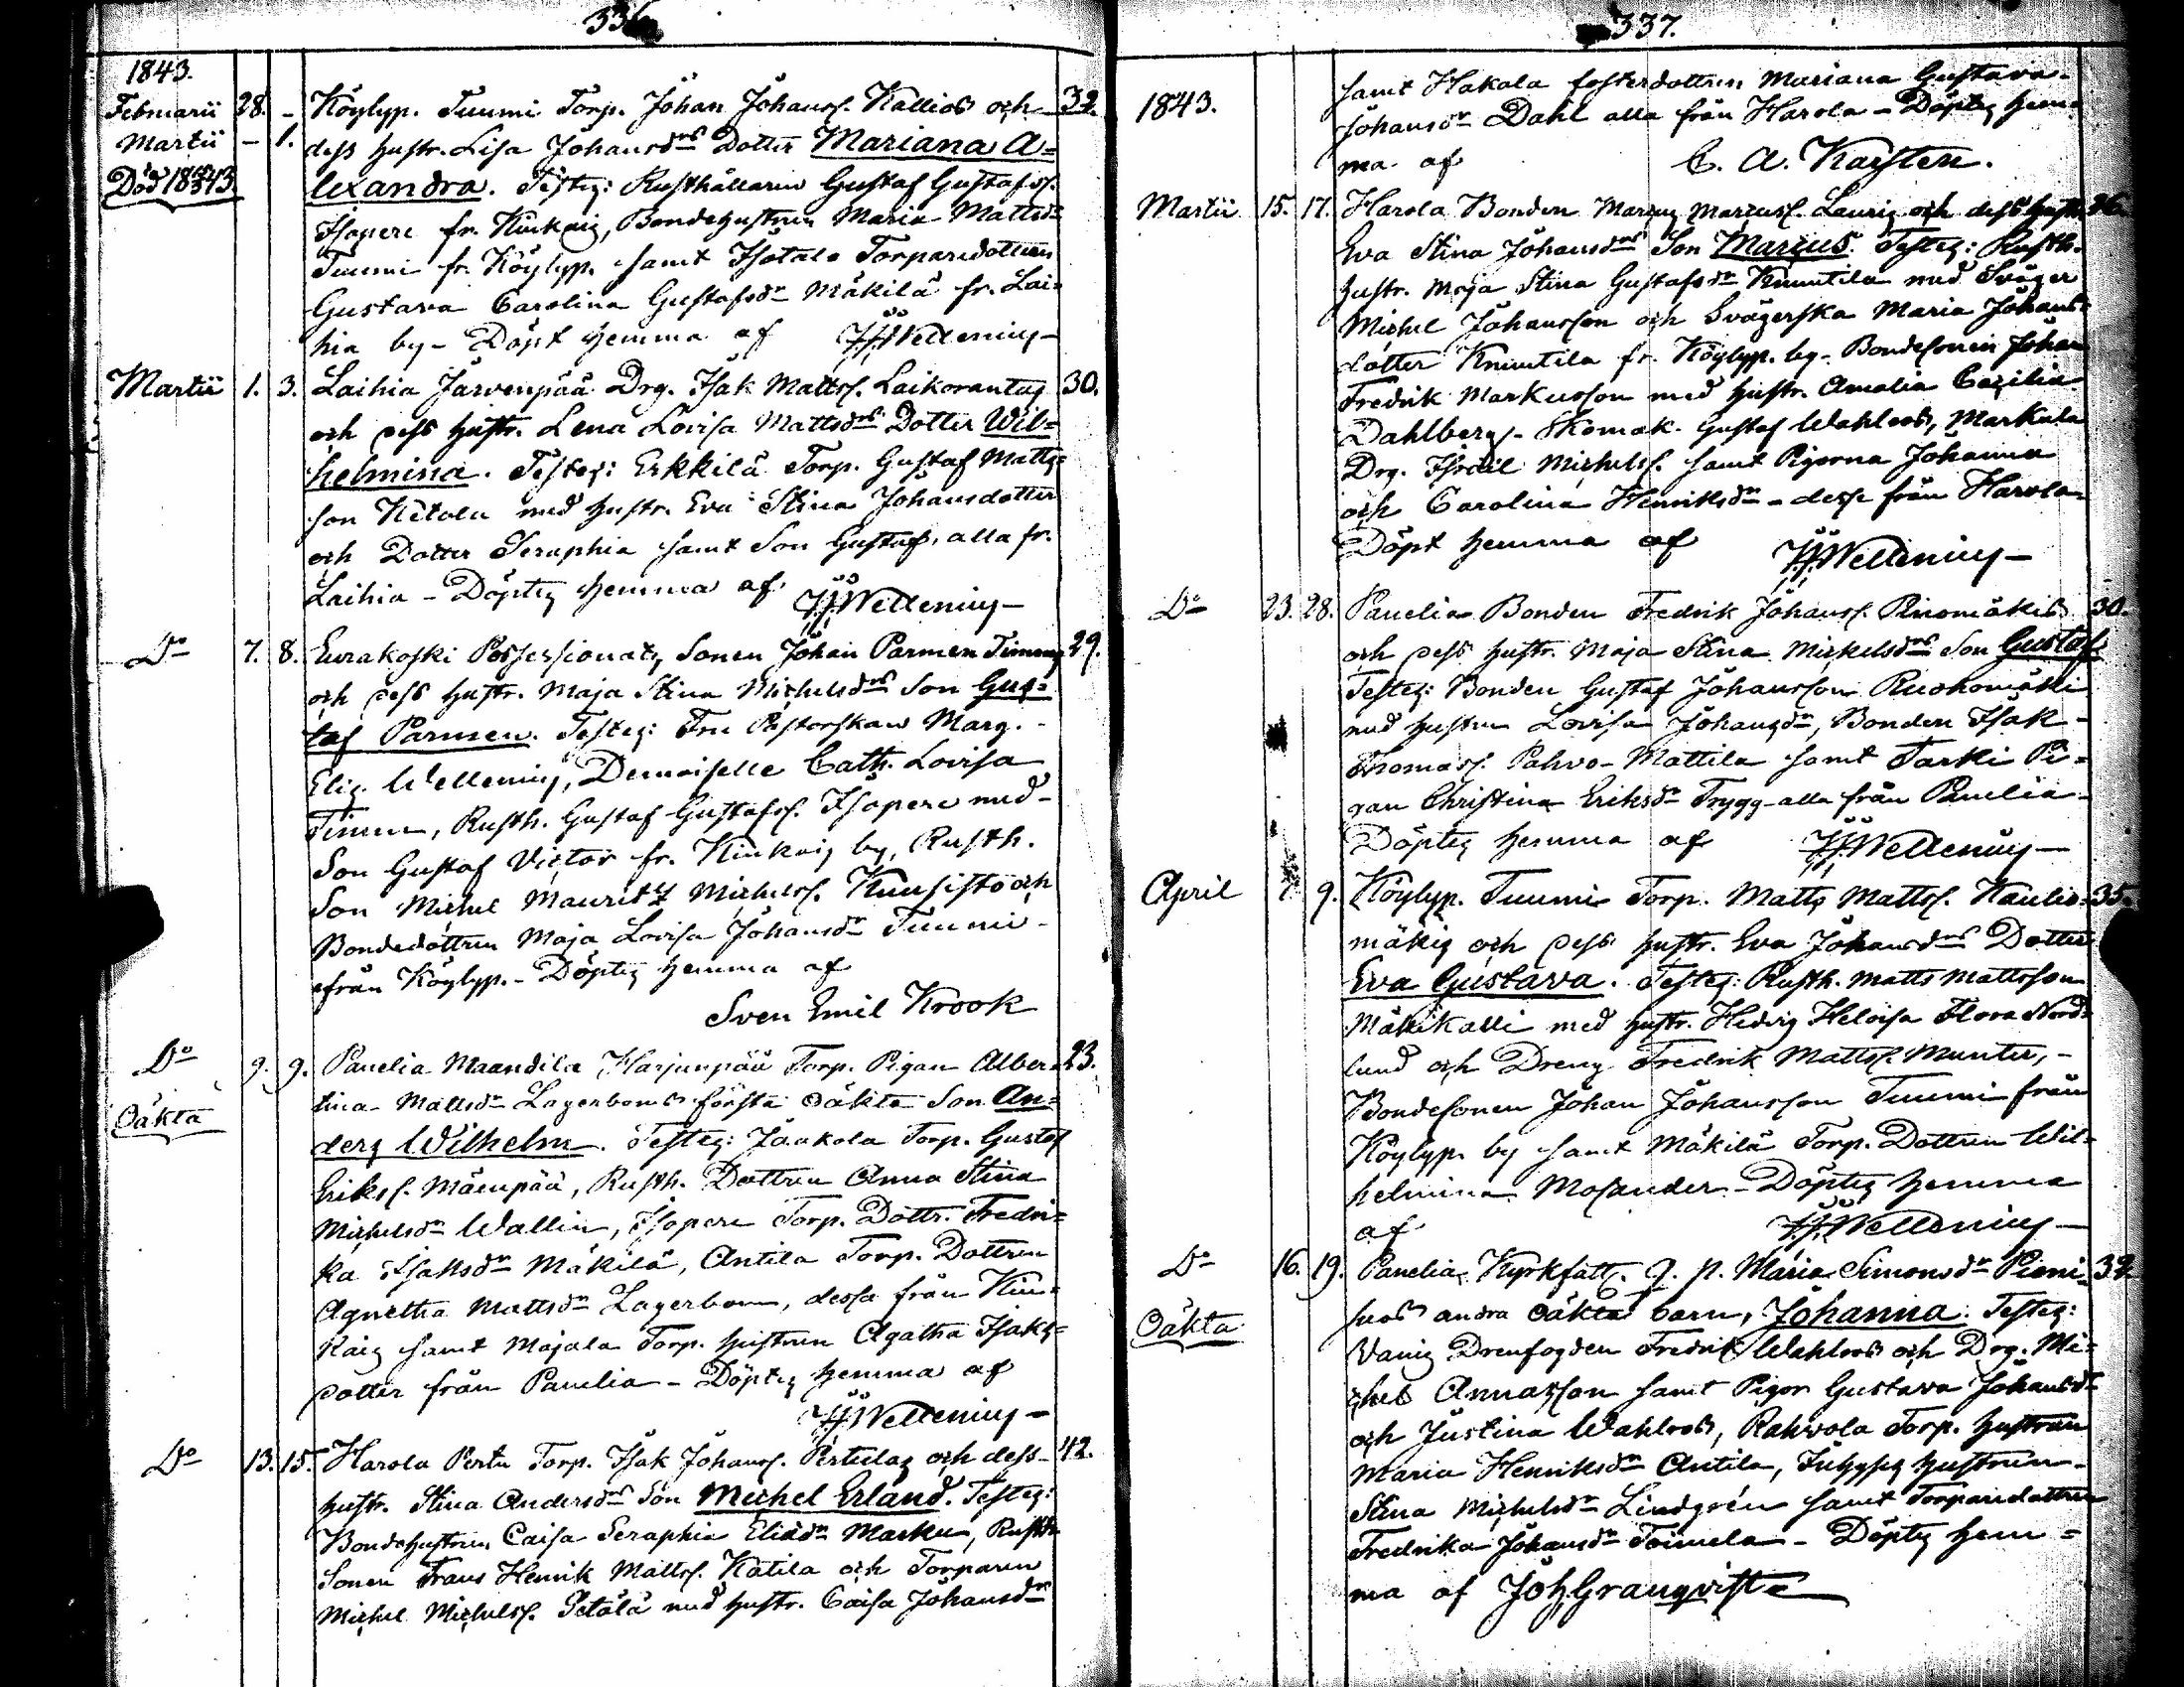 336
1843.
Februarii 28. – Köylyp. Tuumi Torp. Johan Johanss. Kallios och 32.
Martii – 1. dess hustr. Lisa Johansdrs Dotter Mariana A=
Död 18 43 lexandra. Testes: Rusthållaren Gustaf Gustafss.
Isopere fr. Kiukais, Bondehustrun Maria Mattsdr
Tuumi fr. Köylyp. samt Isotalo Torparedottren
Gustava Carolina Gustafsdr Mäkilä fr. Lai=
hia by – Döpt hemma af JJWellenius –
Martii 1. 3. Laihia Järvenpää Drg. Isak Mattss. Laikorantas 30.
och dess hustr. Lena Lovisa Mattsdrs Dotter Wil=
helmina. Testes: Erkkilä Torp. Gustaf Matts=
son Ketola med hustr. Eva Stina Johansdotter
och Dotter Seraphia samt Son Gustaf, alla fr.
Laihia – Döptes hemma af JJWellenius –
Do 7. 8. Eurakoski Possessionats Sonen Johan Parmen Timms 29.
och dess hustr. Maja Stina Michelsdrs Son Gus=
taf Parmen. Testes: Fru Pastorskan Marg. –
Elis. Wellenius, Demoiselle Cath. Lovisa
Timm, Rusth. Gustaf Gustafss. Isopere med –
Son Gustaf Victor fr. Kiukais by, Rusth.
Son Michel Maurits Michelss. Kuusisto och
Bondedottren Maja Lovisa Johansdr Tuumi –
från Köylyp. – Döptes hemma af
Sven Emil Krook
Do 9. 9. Panelia Maandila Harjunpää Torp. Pigan Alber= 23.
Oäkta tina Mattsdr Lagerboms första oäkta Son An=
ders Wilhelm. Testes: Jaakola Torp. Gustaf
Erikss. Mäenpää, Rusth. Dottren Anna Stina
Michelsdr Wallin, Isopere Torp. Dottr. Fredri=
ka Isaksdr Mäkilä, Antila Torp. Dottren
Agnetha Mattsdr Lagerbom, dessa från Kiu=
kais samt Majala Torp. hustrun Agatha Isaks=
dotter från Panelia – Döptes hemma af
JJWellenius –
Do 13. 15. Harola Pertu Torp. Isak Johanss. Pertulas och dess 42.
hustr. Stina Andersdrs Son Michel Erland. Testes:
Bondehustrun Caisa Seraphia Eliaedr Marku, Rusth.
Sonen Frans Henrik Mattss. Katila och Torparen
Michel Michelss. Petälä med hustr. Caisa Johansdr
337.
1843. samt Hakala fosterdottren Mariana Gustava
Johansdr Dahl alla från Harola – Döptes hem=
ma af C. A. Karsten.
Martii 15. 17. Harola Bonden Marcus Marcuss. Lauris och dess hustr. 26.
Eva Stina Johansdrs Son Marcus. Testes: Rusth.
hustr. Maja Stina Gustafsdr Knuutila med Svåger
Michel Johansson och Svägerska Maria Johans=
dotter Knuutila fr. Köylyp. by – Bondesonen Johan
Fredrik Markusson med hustr. Amalia Cecilia
Dahlberg – Skomak. Gustaf Wahlroos, Markula
Drg. Israel Michelss. samt Pigorna Johanna
och Carolina Henriksdr – desse från Harola
Döpt hemma af JJWellenius –
Do 23. 28. Panelia Bonden Fredrik Johanss. Rinomäkis 30.
och dess hustr. Maja Stina Michelsdrs Son Gustaf.
Testes: Bonden Gustaf Johansson Ruohomäki
med hustrun Lovisa Johansdr, Bonden Isak –
Thomass. Pahvo-Mattila samt Tarki Pi=
gan Christina Eriksdr Trygg – alla från Panelia
Döptes hemma af JJWellenius –
April 7. 9. Köylyp. Tuumi Torp. Matts Mattss. Kaulio= 35.
mäkis och dess hustr. Eva Johansdrs Dotter
Eva Gustava. Testes: Rusth. Matts Mattsson
Mäkikalli med hustr. Hedvig Heloisa Flora Nord=
lund och Dreng Fredrik Mattss. Munter, –
Bondesonen Johan Johansson Tuumi från
Köylyp. by samt Mäkilä Torp. Dottren Wil=
helmina Mosander – Döptes hemma
af JJWellenius –
Do 16. 19. Panelia Kyrkfatt. Q. P. Maria Simonsdr Pieni= 32.
Oäkta hoos andra oäkta barn, Johanna. Testes:
Vanis Drenfogden Fredrik Wahlroos och Drg. Mi=
chel Annasson samt Pigor Gustava Johansdr
och Justina Wahlroos, Rahvola Torp. hustrun
Maria Henriksdr Antila, Inhyses hustrun
Stina Michelsdr Lindgrén samt Torparedottren
Fredrika Johansdr Toimela – Döptes hem=
ma af Joh. Granqvist